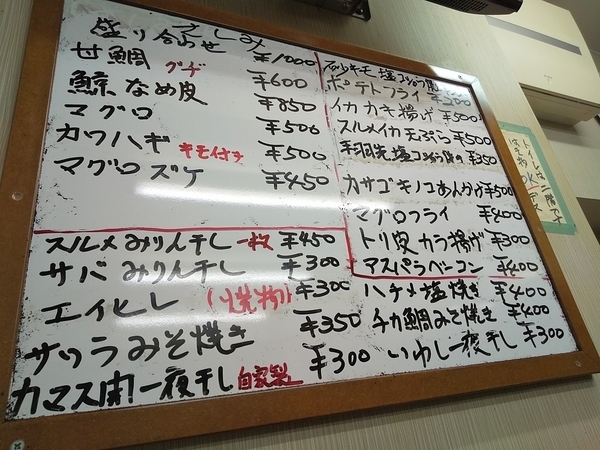 さしみ
盛り合わせ ¥1000
甘鯛 グヂ ¥600
鯨 なめ皮 ¥850
マグロ ¥500
カワハギ キモ付き ¥500
マグロ ズケ ¥450
スルメみりん干し一枚 ¥450
サバみりん干し ¥300
エイヒレ (焼物) ¥300
サワラみそ焼き ¥350
カマス開一夜干し 自家製 ¥300
砂キモ 塩コショウ焼
ポテトフライ ¥300
イカかき揚げ ¥500
スルメイカ天ぷら ¥500
手羽先塩コショウ焼 ¥350
カサゴキノコあんかけ ¥500
マグロフライ ¥400
トリ皮カラ揚げ ¥300
アスパラベーコン ¥400
ハチメ塩焼き ¥400
チカ鯛みそ焼き ¥400
いわし一夜干し ¥300
トイレは二階です